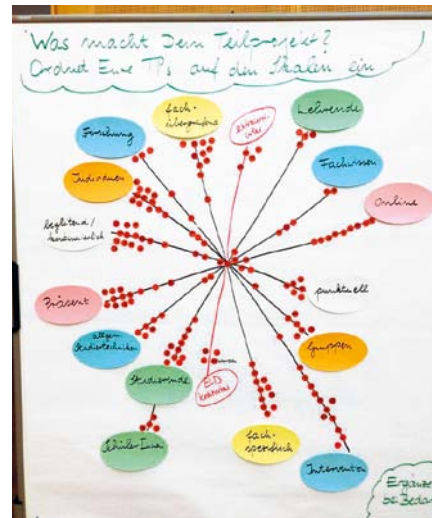 Was macht Dein Teilprojekt?
Ordnet Eure TPs auf den Skalen ein
fach-
übergreifend
Lehrende
Forschung
Fachwissen
Individuen
Online
begleitend/
kontinuierlich
punktuell
Präsent
allgem.
Studientechniken
Gruppen
Studierende
SchülerInnen
fach-
spezifisch
Intervention
Ergänze
bei Bedar